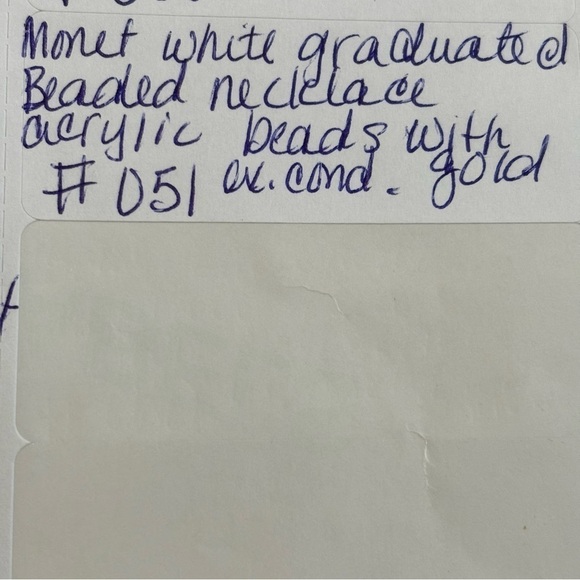 Monet white graduated
Beaded necklace
acrylic beads with
#051 ex. cond. gold